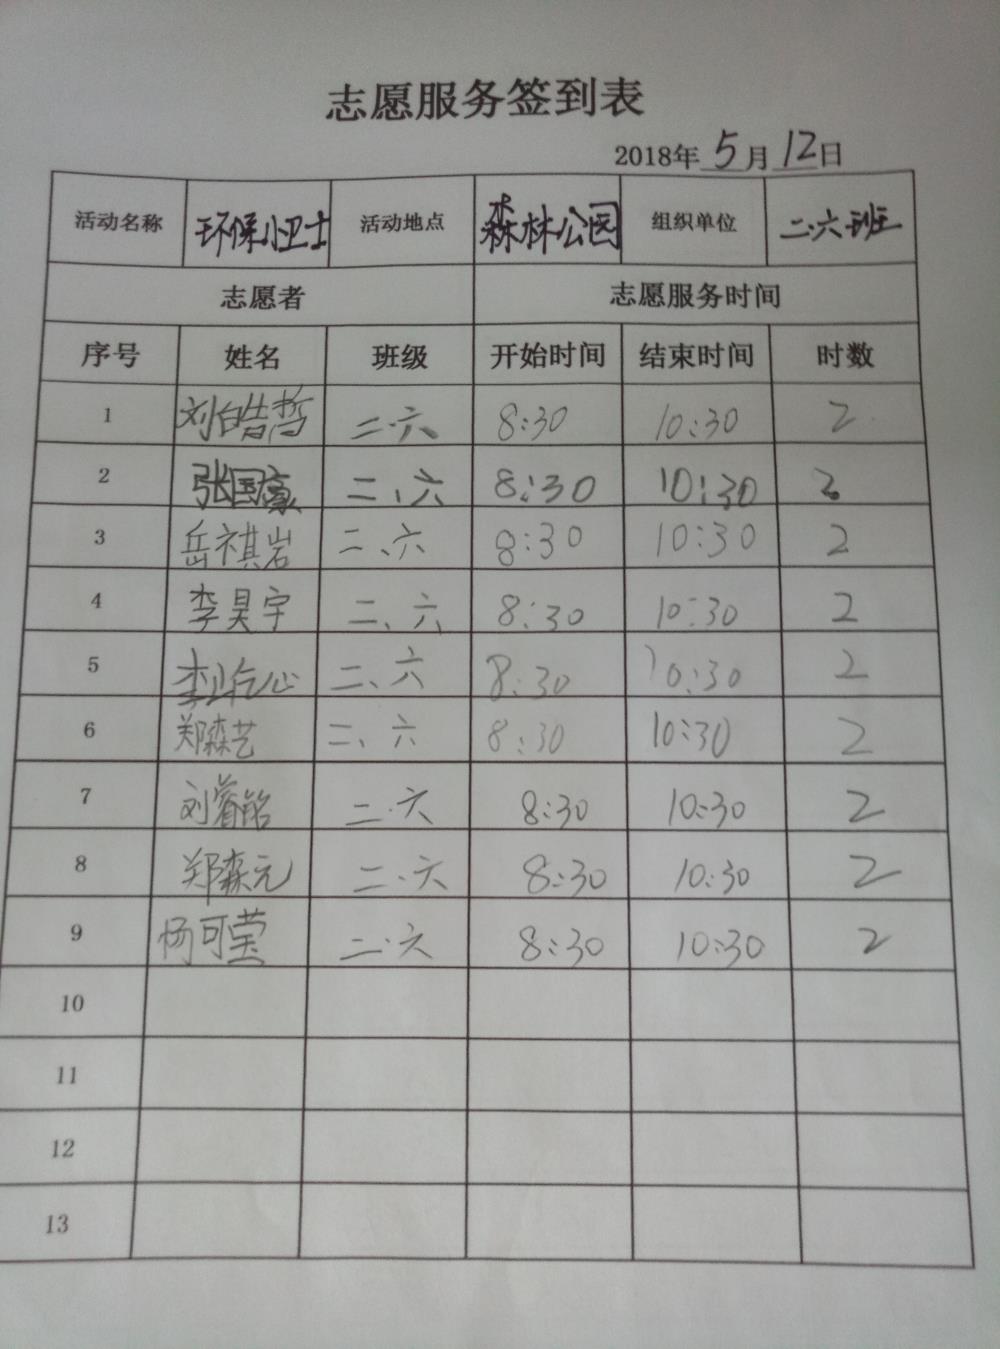 志愿服务签到表
2018年5月12日
活动名称 环保小卫士 活动地点 森林公园 组织单位 二·六班
志愿者 志愿服务时间
序号 姓名 班级 开始时间 结束时间 时数
1 刘皓哲 二·六 8:30 10:30 2
2 张国豪 二、六 8:30 10:30 2
3 岳祺岩 二、六 8:30 10:30 2
4 李昊宇 二、六 8:30 10:30 2
5 李 心 二、六 8:30 10:30 2
6 郑森艺 二、六 8:30 10:30 2
7 刘睿铭 二·六 8:30 10:30 2
8 郑森元 二·六 8:30 10:30 2
9 杨可莹 二·六 8:30 10:30 2
10
11
12
13